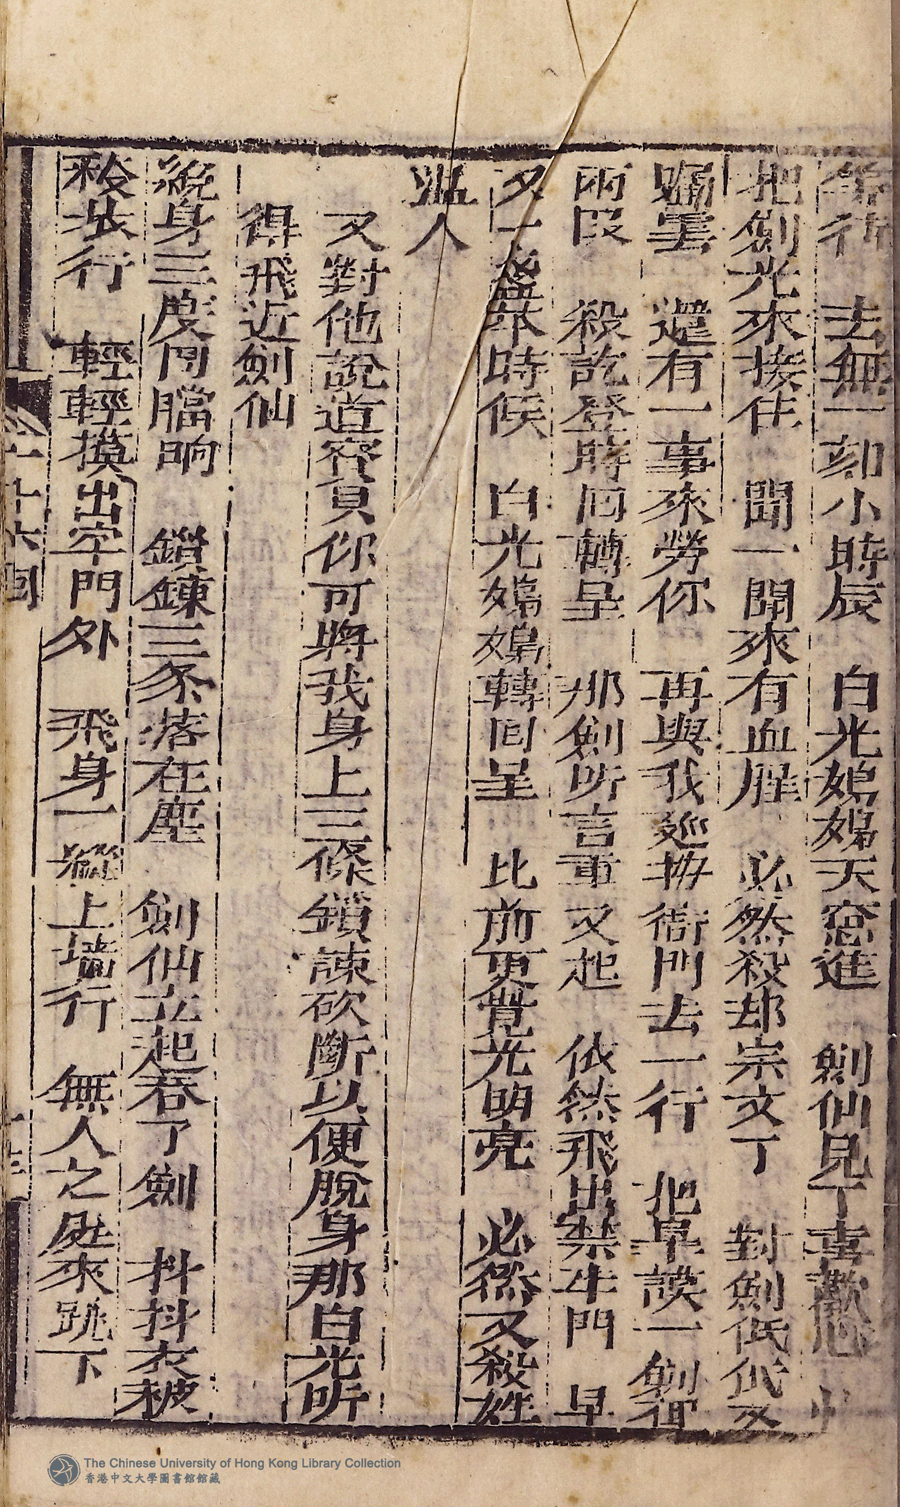 去無一刻小時辰　白光娚娚天窓進　劍仙見了喜歡心
把劍光來接住　聞一聞來有血腥　必然殺却宗文丁　對劍低低又
囑雲　還有一事來勞你　再與我廵撫衙門去一行　把阜謨一劍揮
兩段　殺訖登時囘轉呈　那劍听言重又起　依然飛出禁牢門　早
又一盞茶時候　白光娚娚轉囘呈　比前更覺光明亮　必然又殺姓
温人
又對他說道寶貝你可將我身上三條鎖諫砍斷以便脫身那白光听
得飛近劍仙
繞身三度冋膛晌　鎖鍊三条落在塵　劍仙立起吞了劍　抖抖衣袂
移步行　輕輕摸出牢門外　飛身一縱上墻行　無人之處來跳下
二十六囘
The Chinese University of Hong Kong Library Collection
香港中文大學圖書館館藏